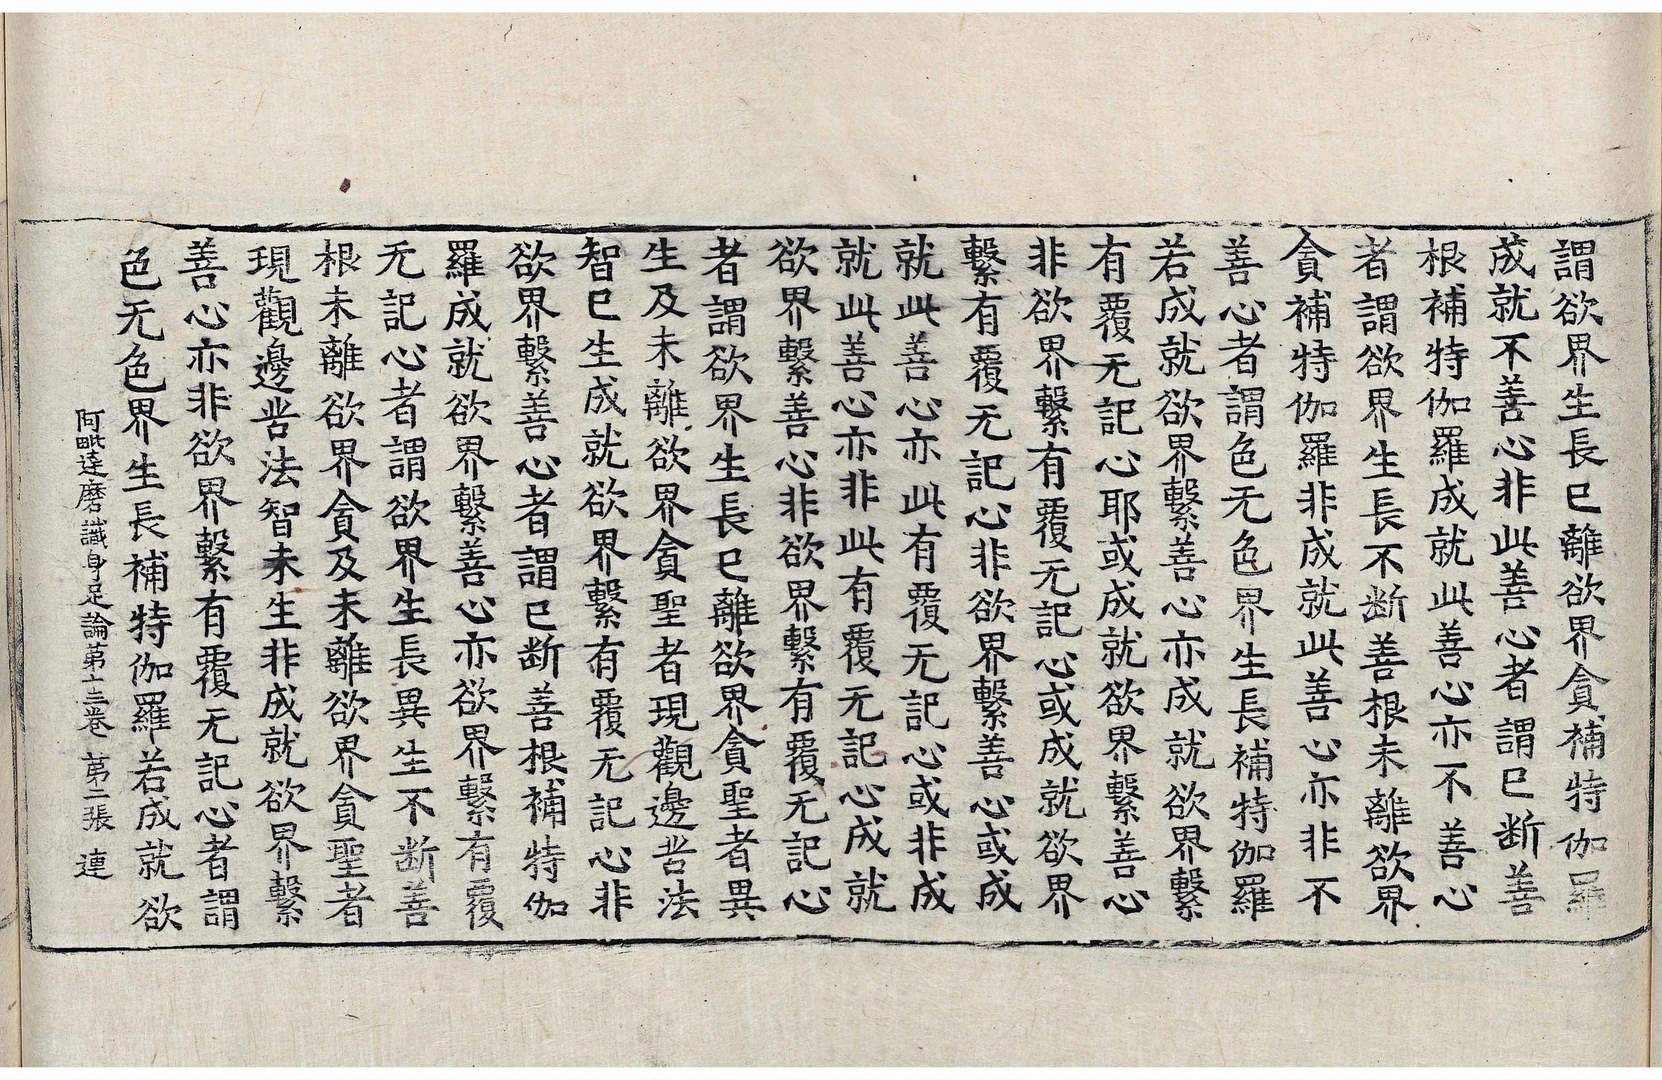 謂欲界生長已離欲界貪補特伽羅
成就不善心非此善心者謂已斷善
根補特伽羅成就此善心亦不善心
者謂欲界生長不断善根未離欲界
貪補特伽羅非成就此善心亦非不
善心者謂色无色界生長補特伽羅
若成就欲界繫善心亦成就欲界繫
有覆无記心耶或成就欲界繫善心
非欲界繫有覆无記心或成就欲界
繫有覆无記心非欲界繫善心或成
就此善心亦此有覆无記心或非成
就此善心亦非此有覆无記心成就
欲界繫善心非欲界繫有覆无記心
者謂欲界生長已離欲界貪聖者異
生及未離欲界貪聖者現觀邊苦法
智已生成就欲界繫有覆无記心非
欲界繫善心者謂已断善根補特伽
羅成就欲界繫善心亦欲界繫有覆
无記心者謂欲界生長異生不断善
根未離欲界貪及未離欲界貪聖者
現觀邊苦法智未生非成就欲界繫
善心亦非欲界繫有覆无記心者謂
色无色界生長補特伽羅若成就欲
阿毗達磨識身足論第十三卷 第二張 連